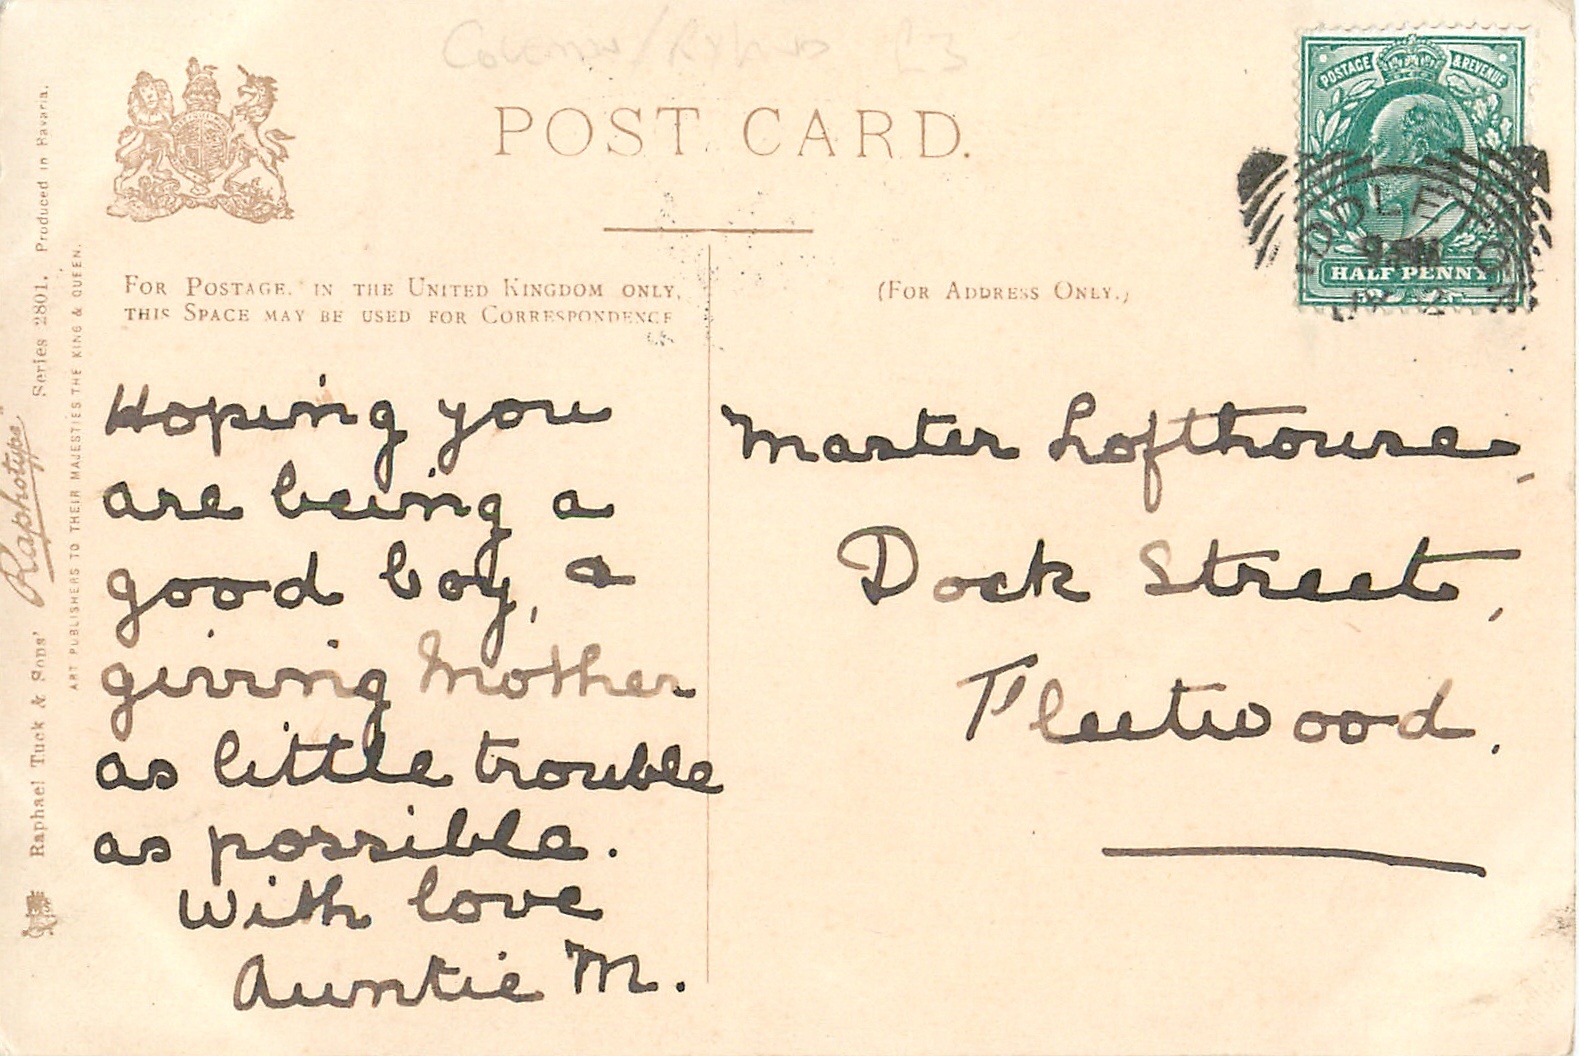 POST CARD.
POSTAGE & REVENUE
HALF PENNY
FOR POSTAGE IN THE UNITED KINGDOM ONLY,
THIS SPACE MAY BE USED FOR CORRESPONDENCE
(FOR ADDRESS ONLY.)
Hoping you
are being a
good boy, a
giving Mother
as little trouble
as possible.
With love
Auntie M.
Master Lofthouse,
Dock Street,
Fleetwood.
Raphael Tuck & Sons' Raphotype Series 2801. Produced in Bavaria.
ART PUBLISHERS TO THEIR MAJESTIES THE KING & QUEEN.